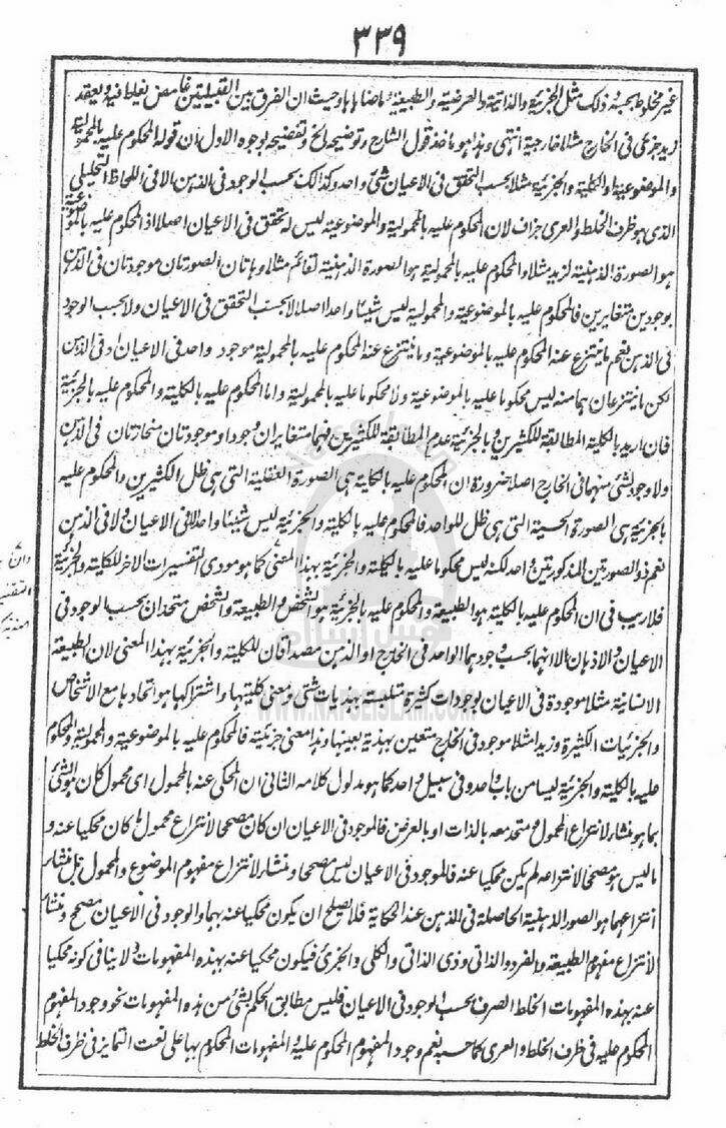 ٣٣٩
غير مخلوط بحسبه وذلك مثل الجزئية والذاتية والعرضية والطبيعية باضنا بها وحيث ان الفرق بين القبيلتين غامض يغلط فيه ويعقد
زيد جزئى فى الخارج مثلا خارجية انتهى وهذا هو ماخذ قول الشارح وتوضيحه الخ وتفضيحه بوجوه الاول ان قوله المحكوم عليه بالمحمولية
والموضوعية او الكلية والجزئية مثلا بحسب التحقق فى الاعيان شئ واحد وكذلك بحسب الوجود فى الذهن الا فى اللحاظ التحليلى
الذى هو ظرف الخلط والعرى جزاف لان المحكوم عليه بالمحمولية والموضوعية ليس له تحقق فى الاعيان اصلا اذ المحكوم عليه بالموضوعية
هو الصورة الذهنية لزيد مثلا والمحكوم عليه بالمحمولية هو الصورة الذهنية لقائم مثلا وهاتان الصورتان موجودتان فى الذهن
بوجودين متغايرين فالمحكوم عليه بالموضوعية والمحمولية ليس شيئا واحدا اصلا لا بحسب التحقق فى الاعيان ولا بحسب الوجود
فى الذهن نعم ما ينتزع عنه المحكوم عليه بالموضوعية وما ينتزع عنه المحكوم عليه بالمحمولية موجود واحد فى الاعيان او فى الذهن
لكن ما ينتزعان هما منه ليس محكوما عليه بالموضوعية ولا محكوما عليه بالمحمولية واما المحكوم عليه بالكلية والمحكوم عليه بالجزئية
فان اريد بالكلية المطابقة للكثيرين وبالجزئية عدم المطابقة للكثيرين فهما متغايران وجودا وموجودتان منحازتان فى الذهن
ولا وجود لشئ منهما فى الخارج اصلا ضرورة ان المحكوم عليه بالكلية هى الصورة العقلية التى هى ظل الكثيرين والمحكوم عليه
بالجزئية هى الصورة الحسية التى هى ظل للواحد فالمحكوم عليه بالكلية والجزئية ليس شيئا واحدا لا فى الاعيان ولا فى الذهن
نعم ذو الصورتين المذكورتين واحد لكنه ليس محكوما عليه بالكلية والجزئية بهذا المعنى كما هو مودى التفسيرات الاخر للكلية والجزئية
فلا ريب فى ان المحكوم عليه بالكلية هو الطبيعة والمحكوم عليه بالجزئية هو الشخص والطبيعة والشخص متحدان بحسب الوجود فى
الاعيان والاذهان الا انهما بحسب وجودهما الواحد فى الخارج او الذهن مصداقان للكلية والجزئية بهذا المعنى لان الطبيعة
الانسانية مثلا موجودة فى الاعيان بوجودات كثيرة متلبسة بهذيات شتى ومعنى كليتها واشتراكها هو اتحادها مع الاشخاص
والجزئيات الكثيرة وزيدا مثلا موجود فى الخارج متعين بهذية بعينها وهذا معنى جزئيته فالمحكوم عليه بالموضوعية والمحمولية والمحكوم
عليه بالكلية والجزئية ليسا من باب واحد وفى سبيل واحد كما هو مدلول كلامه الثانى ان المحكى عنه بالمحمول اى محمول كان هو الشئ
بما هو منشاء لانتزاع المحمول ومتحد معه بالذات او بالعرض فالموجود فى الاعيان ان كان مصححا لانتزاع محمول ما كان محكيا عنه و
ما ليس هو مصححا لانتزاعه لم يكن محكيا عنه فالموجود فى الاعيان ليس مصححا ومنشاء لانتزاع مفهوم الموضوع والمحمول بل منشاء
انتزاعهما هو الصور الذهنية الحاصلة فى الذهن عند الحكاية فلا يصلح ان يكون محكيا عنه بهما والوجود فى الاعيان مصحح ومنشاء
لانتزاع مفهوم الطبيعة والفرد والذاتى وذى الذاتى والكلى والجزئ فيكون محكيا عنه بهذه المفهومات ولا ينافى كونه محكيا
عنه بهذه المفهومات الخلط الصرف بحسب الوجود فى الاعيان فليس مطابق الحكم بشئ من هذه المفهومات نحو وجود المفهوم
المحكوم عليه فى ظرف الخلط والعرى كما حسبه نعم وجود المفهوم المحكوم عليه المفهومات المحكوم بها على نعت التمايز فى ظرف الخلط
WWW.NAFSEISLAM.COM